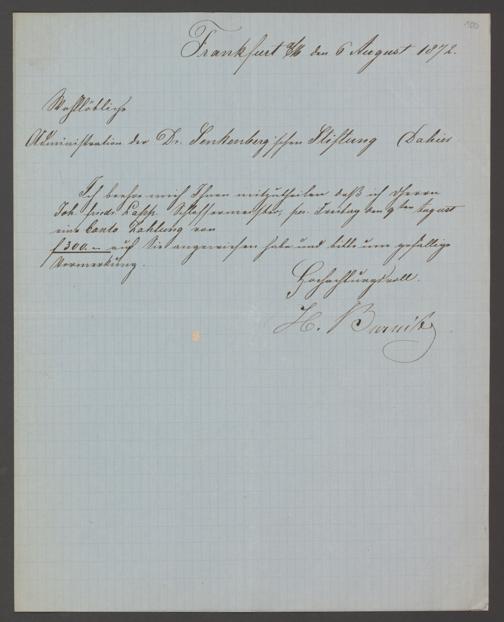 150
Frankfurt a/M den 6 August 1872.
Wohllöbliche
Administration der Dr. Senkenberg'schen Stiftung Dahier
Ich beehre mich Ihnen mitzutheilen daß ich Herrn
Joh. Friedr. Schlossermeister, pr. Freitag den 9ten August
eine Conto Zahlung von
f 300.– auf Sie angewiesen habe und bitte um gefällige
Vormerkung.
Hochachtungsvoll.
H. Burnitz